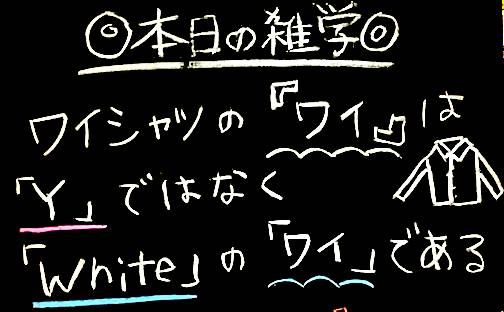 ◎本日の雑学◎
ワイシャツの『ワイ』は
「Y」ではなく
「White」の「ワイ」である